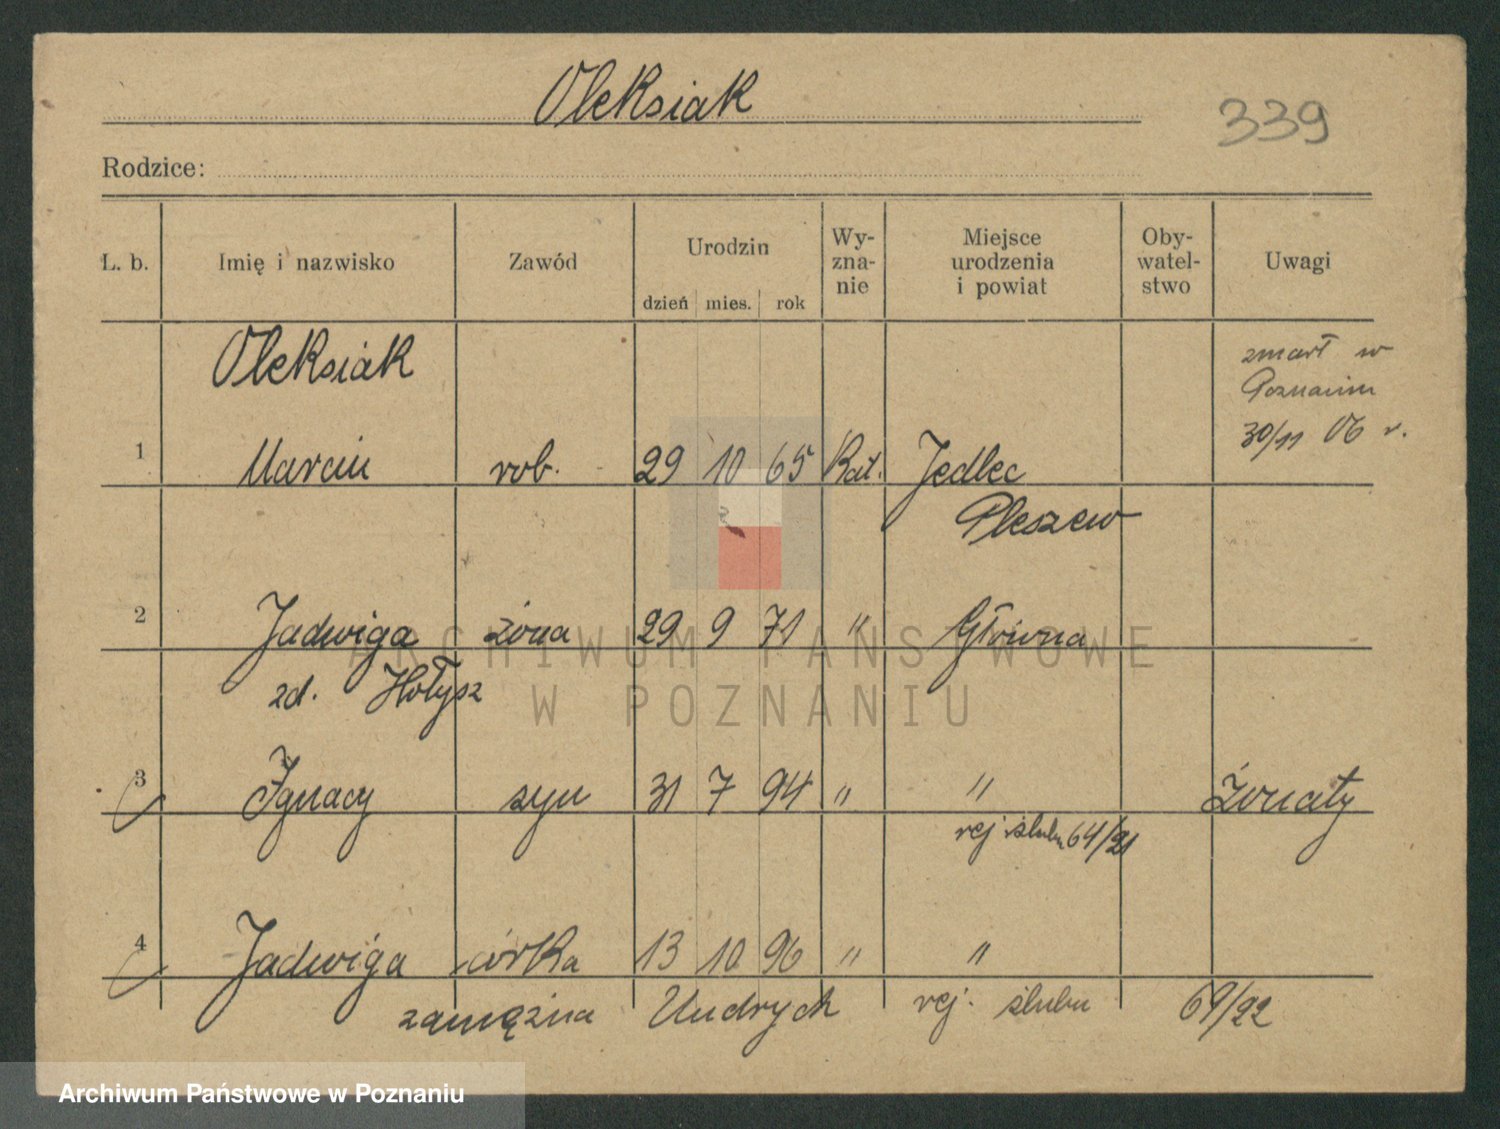 Oleksiak
339
Rodzice:
Ł. b. Imię i nazwisko Zawód Urodzin dzień mies. rok Wy-zna-nie Miejsce urodzenia i powiat Oby-watel-stwo Uwagi
Oleksiak
zmarł w
Poznaniu
30/11 06 r.
1 Marcin rob. 29 10 65 Kat. Jedlec
Pleszew
2 Jadwiga żona 29 9 71 " Główna
zd. Hołysz
3 Ignacy syn 31 7 94 " " Żonaty
rej ślubu 64/21
4 Jadwiga córka 13 10 96 " "
zamężna Undrych rej. ślubu 69/22
ARCHIWUM PAŃSTWOWE
W POZNANIU
Archiwum Państwowe w Poznaniu